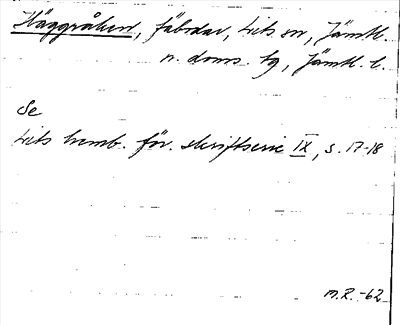 Häggråsen, fäbodar, Lits sn, Jämtl.
n. doms. tg, Jämtl. l.
Se
Lits hemb. för. skriftserie IX, s. 17-18
m.R. -62